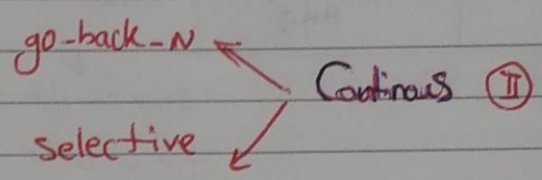 go-back-N
Continous II
selective